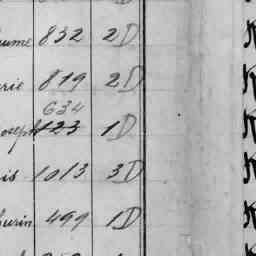 ume 832 2D
rie 819 2D
634
oseph 123 1D
is 1013 3D
hurin 499 1D